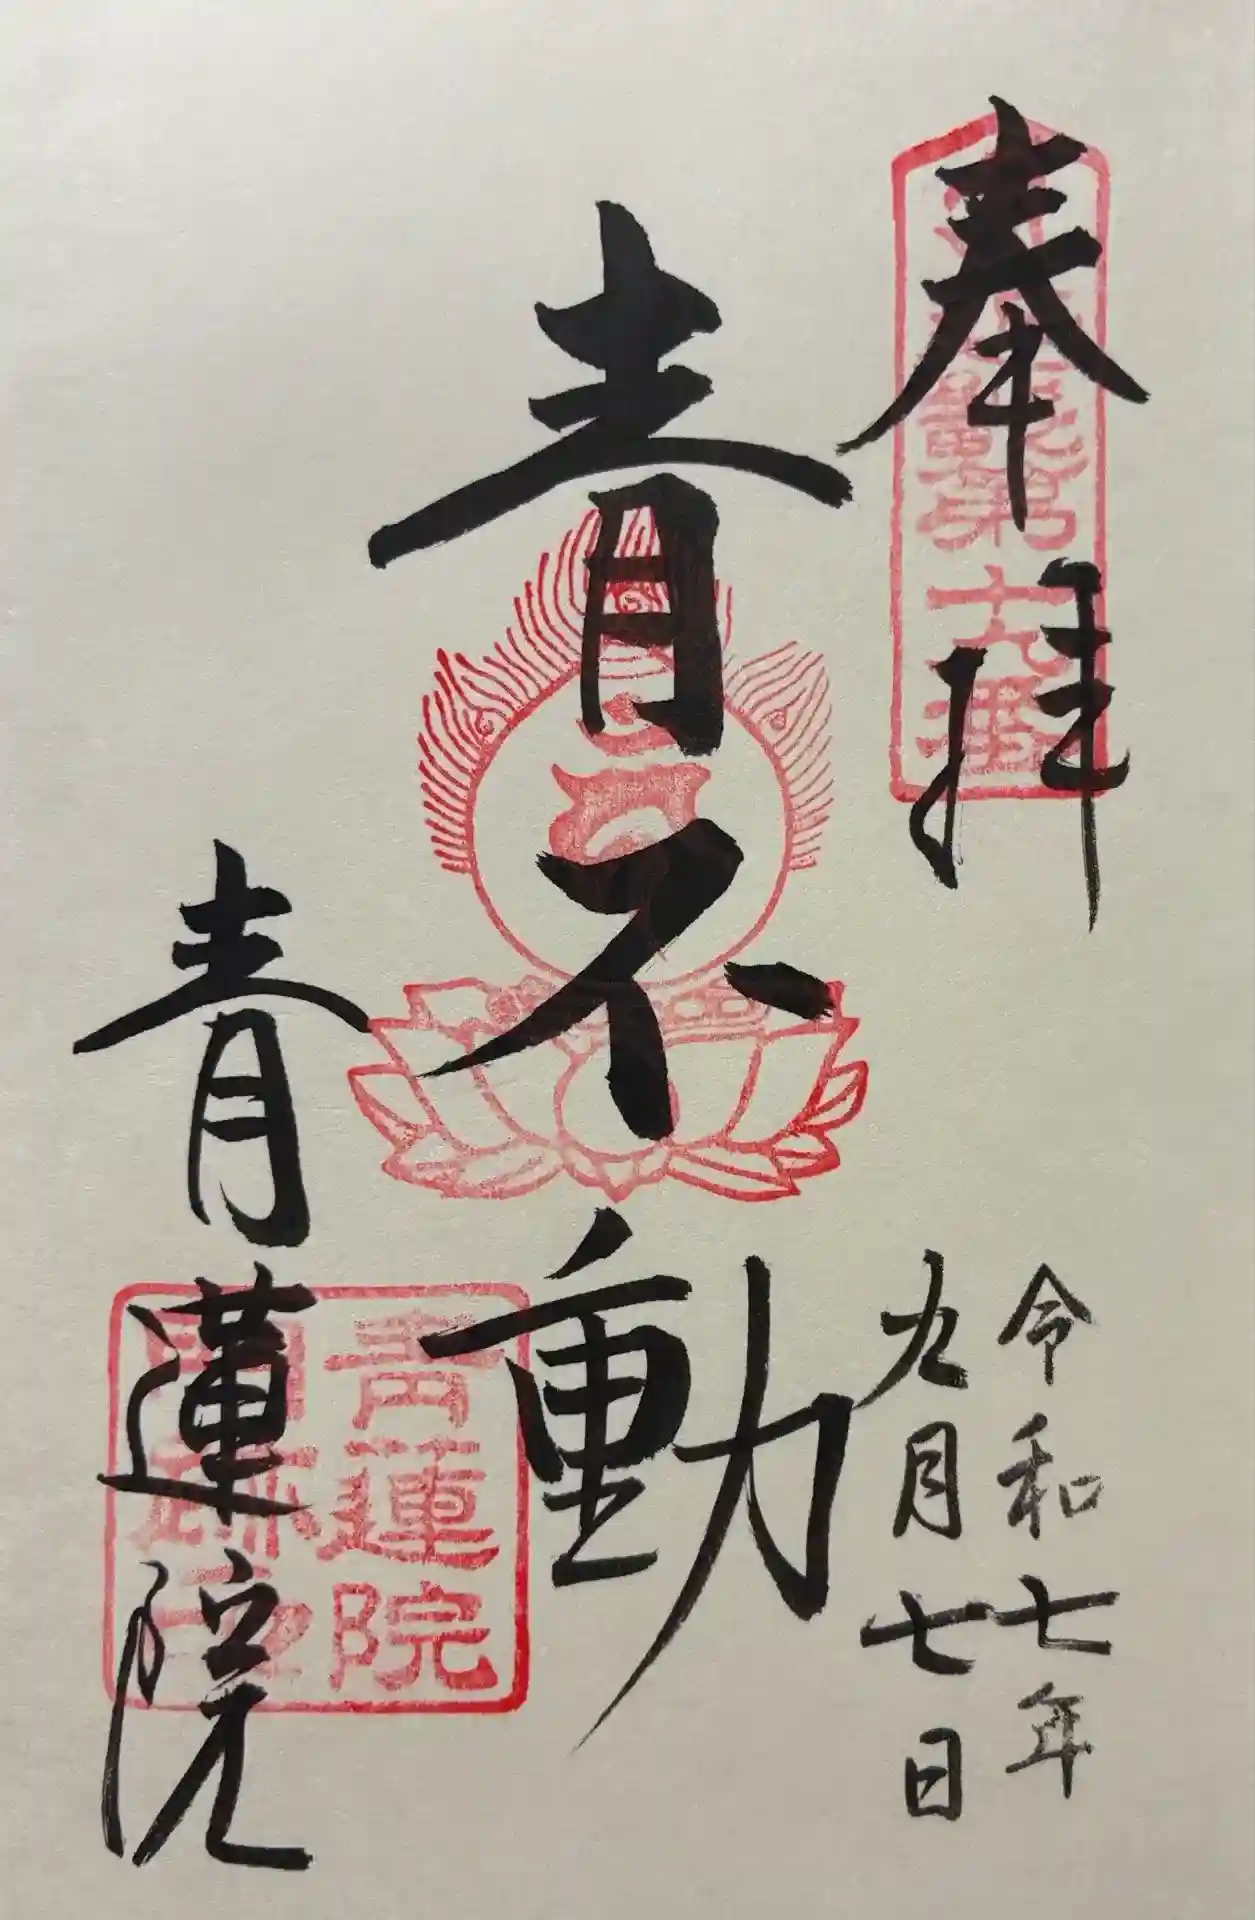 奉拝
令和七年
九月七日
青不動
青蓮院
第十九番
青蓮院